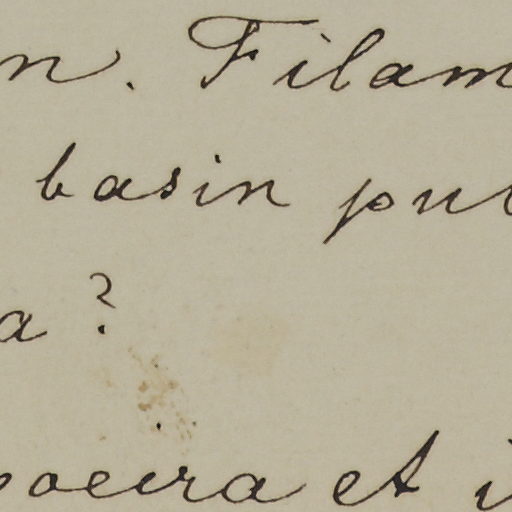 n. Filam
basin pu
a?
poeira et i